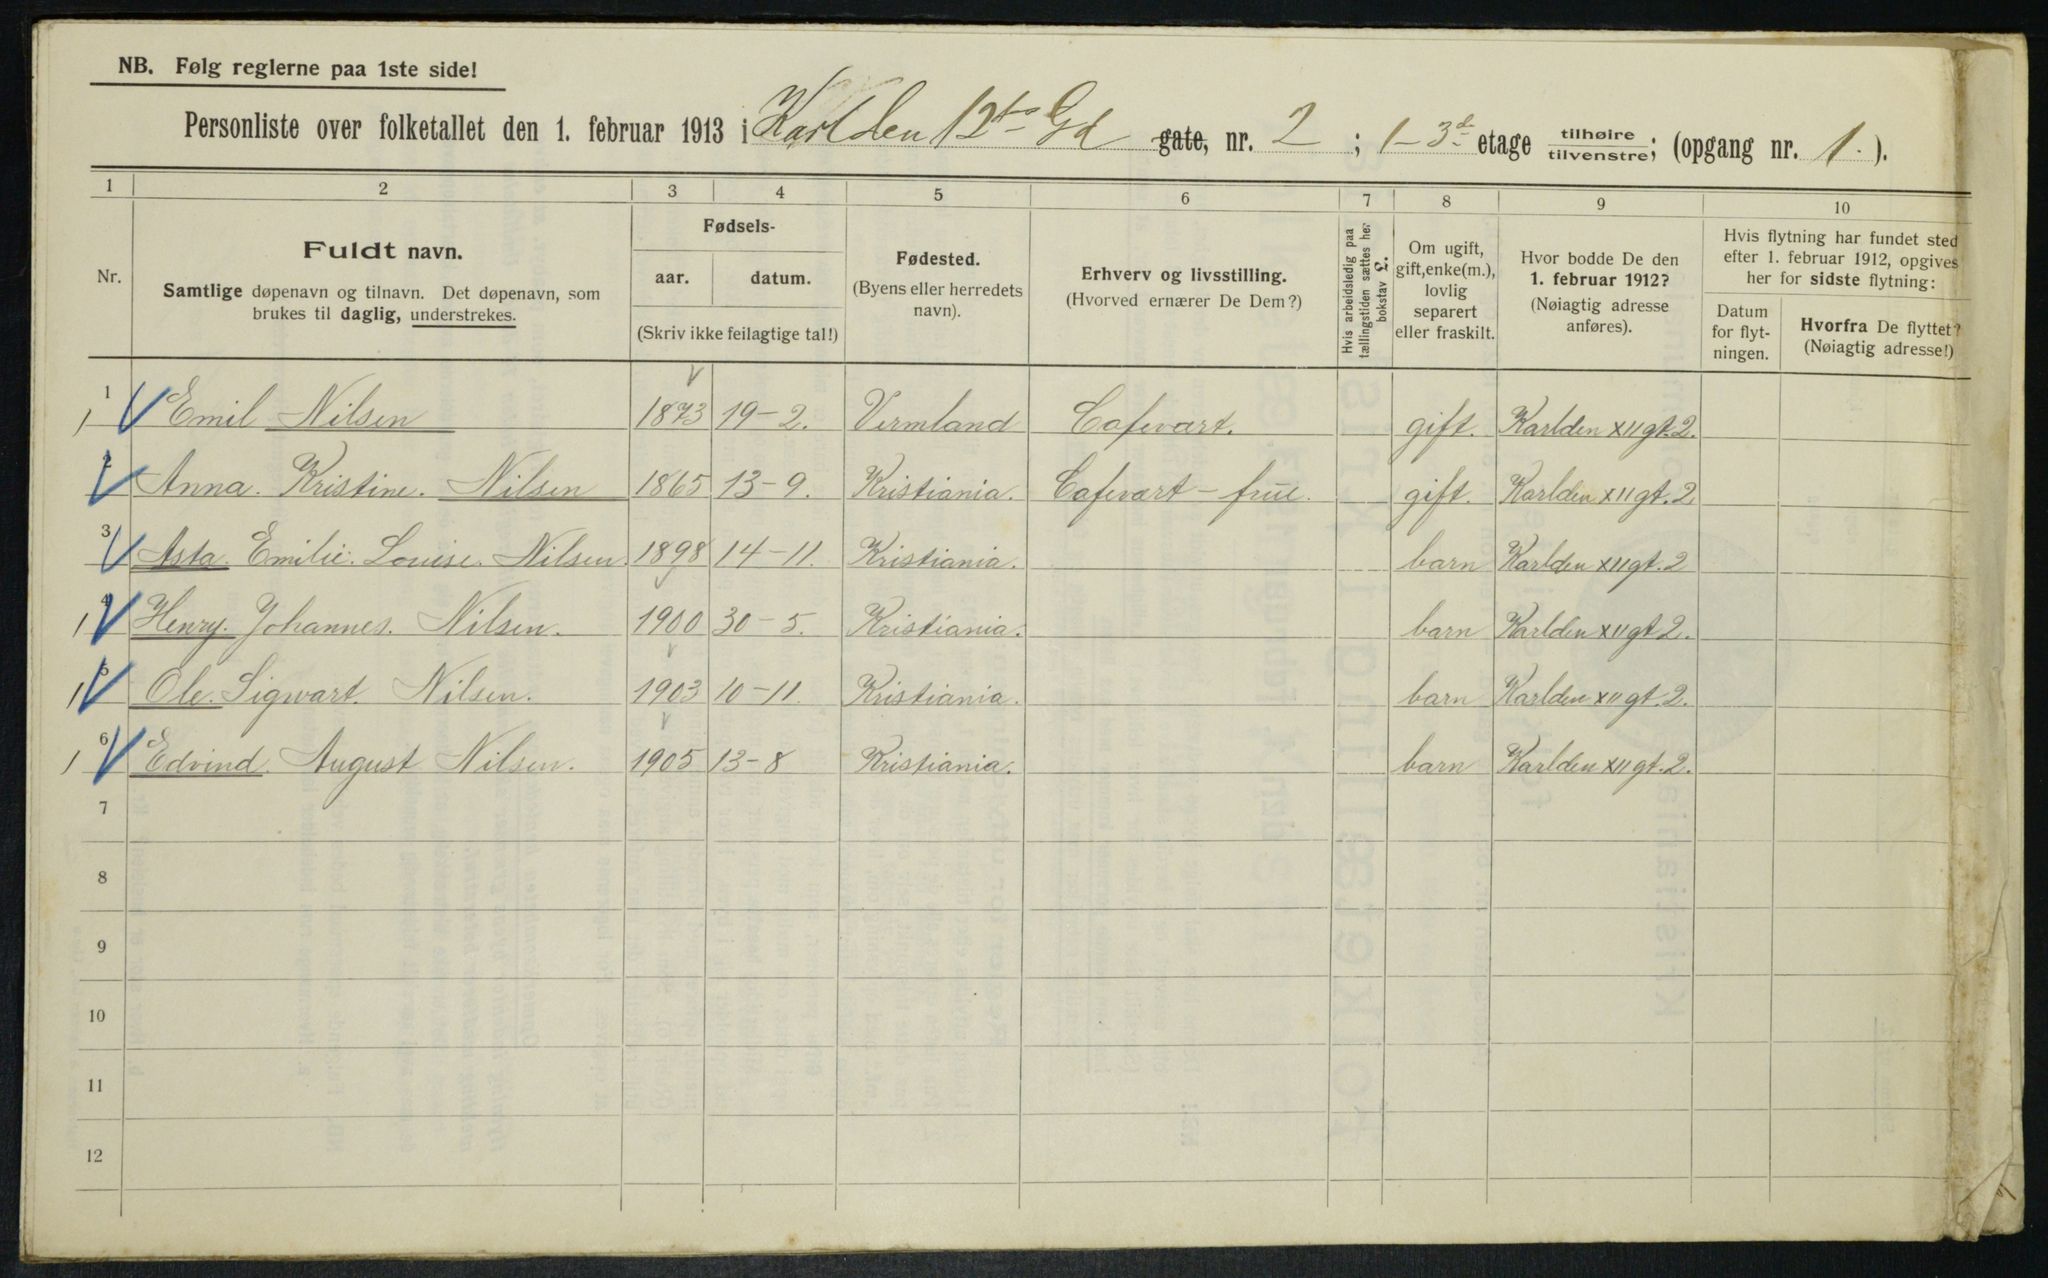 NB. Følg reglerne paa 1ste side!
Personliste over folketallet den 1. februar 1913 i Karl den 12tes Gd gate, nr. 2 ; 1-3d. etage tilhøire/tilvenstre; (opgang nr. 1. ).
1 2 3 4 5 6 7 8 9 10
Nr.
Fuldt navn.
Samtlige døpenavn og tilnavn. Det døpenavn, som
brukes til daglig, understrekes.
Fødsels-
aar. datum.
(Skriv ikke feilagtige tal!)
Fødested.
(Byens eller herredets
navn).
Erhverv og livsstilling.
(Hvorved ernærer De Dem?)
Hvis arbeidsledig paa
tællingstiden sættes her
bokstav £.
Om ugift,
gift, enke(m.),
lovlig
separert
eller fraskilt.
Hvor bodde De den
1. februar 1912?
(Nøiagtig adresse
anføres).
Hvis flytning har fundet sted
efter 1. februar 1912, opgives
her for sidste flytning:
Datum
for flyt-
ningen.
Hvorfra De flyttet?
(Nøiagtig adresse!)
1 1 Emil Nilsen 1873 19-2. Vermland Cafevært. gift. Karlden XII gt. 2.
2 Anna. Kristine. Nilsen 1865 13-9. Kristiania. Cafevært-frue. gift. Karlden XII gt. 2
3 Asta. Emilie. Louise. Nilsen. 1898 14-11. Kristiania. barn Karlden XII gt. 2
1 4 Henry. Johannes. Nilsen. 1900 30-5. Kristiania. barn Karlden XII gt 2.
1 5 Ole. Sigwart. Nilsen. 1903 10-11. Kristiania. barn Karlden XII gt. 2.
1 6 Edvind. August Nilsen. 1905 13-8 Kristiania. barn Karlden XII gt. 2.
7
8
9
10
11
12